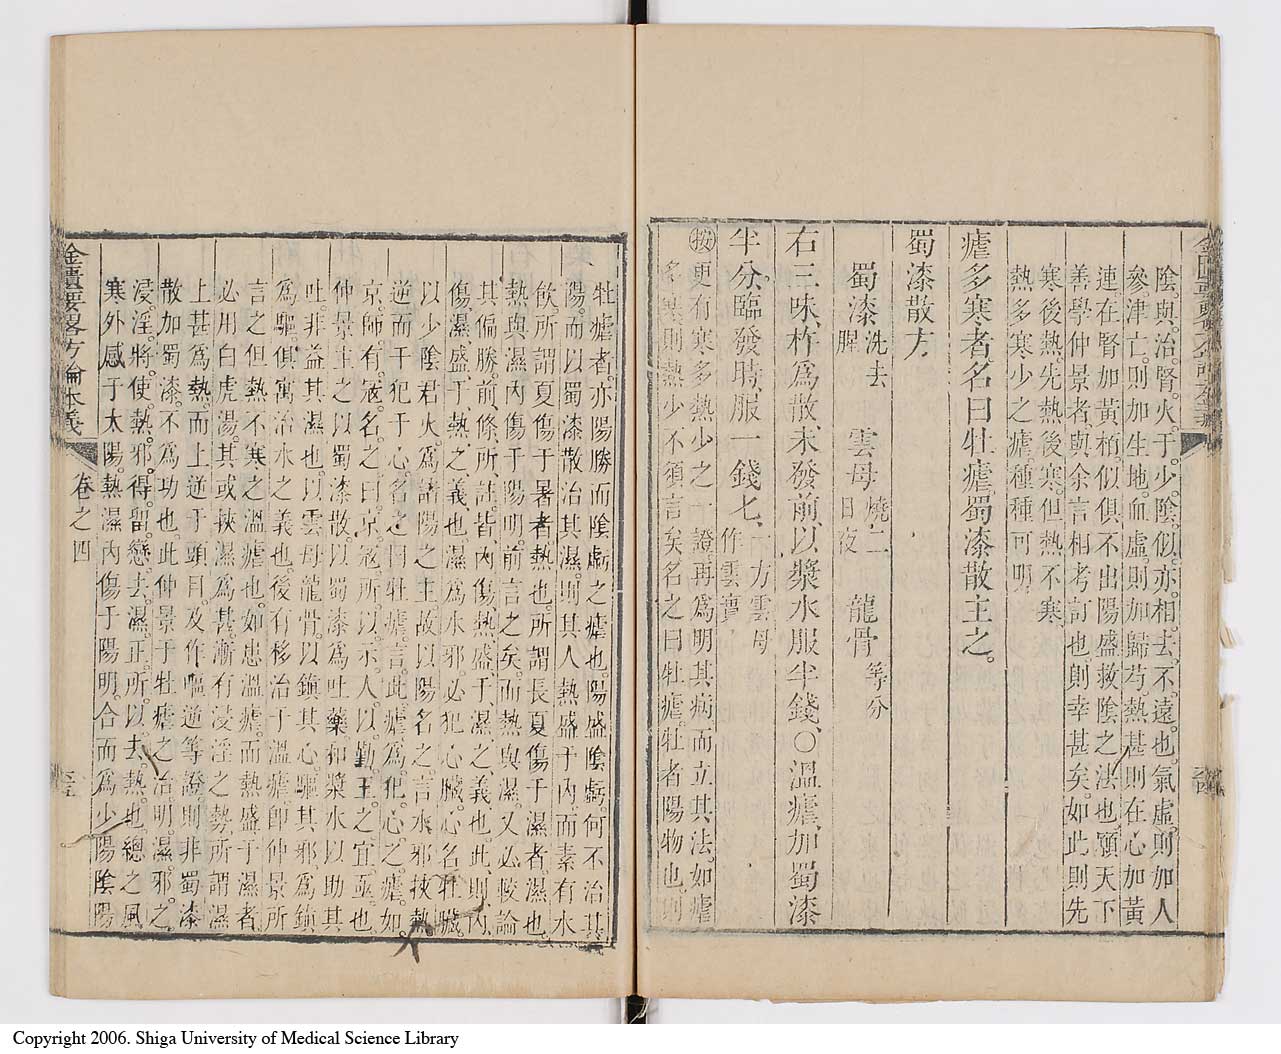 陰與治腎火于少陰似亦相去不遠也氣虛則加人
參津亡則加生地血虛則加歸芎熱甚則在心加黃
連在腎加黃栢似俱不出陽盛救陰之法也願天下
善學仲景者與余言相考訂也則幸甚矣如此則先
寒後熱先熱後寒但熱不寒
熱多寒少之瘧種種可明
瘧多寒者名曰牡瘧蜀漆散主之
蜀漆散方
蜀漆洗去腥 雲母燒二日夜 龍骨等分
右三味杵爲散未發前以漿水服半錢○溫瘧加蜀漆
半分臨發時服一錢匕一方雲母作雲實
按更有寒多熱少之一證再爲明其病而立其法如瘧
多寒則熱少不須言矣名之曰牡瘧牡者陽物也則
牡瘧者亦陽勝而陰虧之瘧也陽盛陰虧何不治其
陽而以蜀漆散治其濕明其人熱盛于內而素有水
飲所謂夏傷于暑者熱也所謂長夏傷于濕者濕也
熱與濕內傷于陽明前言之矣而熱與濕又必較論
其偏勝前條所註皆內傷熱盛于濕之義也此則內
傷濕盛于熱之義也濕爲水邪必犯心臟心名牡臟
以少陰君火爲諸陽之主故以陽名之言水邪挾熱
逆而干犯于心名之曰牡瘧言此瘧爲犯心之瘧如
京師有寇名之曰京寇所以示人以勤王之宜亟也
仲景主之以蜀漆散以蜀漆爲吐藥和漿水以助其
吐非益其濕也以雲母龍骨以鎮其心驅其邪爲鎮
爲驅俱寓治水之義也後有移治于溫瘧即仲景所
言之但熱不寒之溫瘧也如患溫瘧而熱盛于濕者
必用白虎湯其或挾濕爲甚漸有浸淫之勢所謂濕
上甚爲熱而上逆于頭目及作嘔逆等證則非蜀漆
散加蜀漆不爲功也此仲景于牡瘧之治明濕邪之
浸淫將使熱邪得留戀去濕正所以去熱也總之風
寒外感于太陽熱濕內傷于陽明合而爲少陽陰陽
金匱要畧方論本義
卷之四
Copyright 2006. Shiga University of Medical Science Library